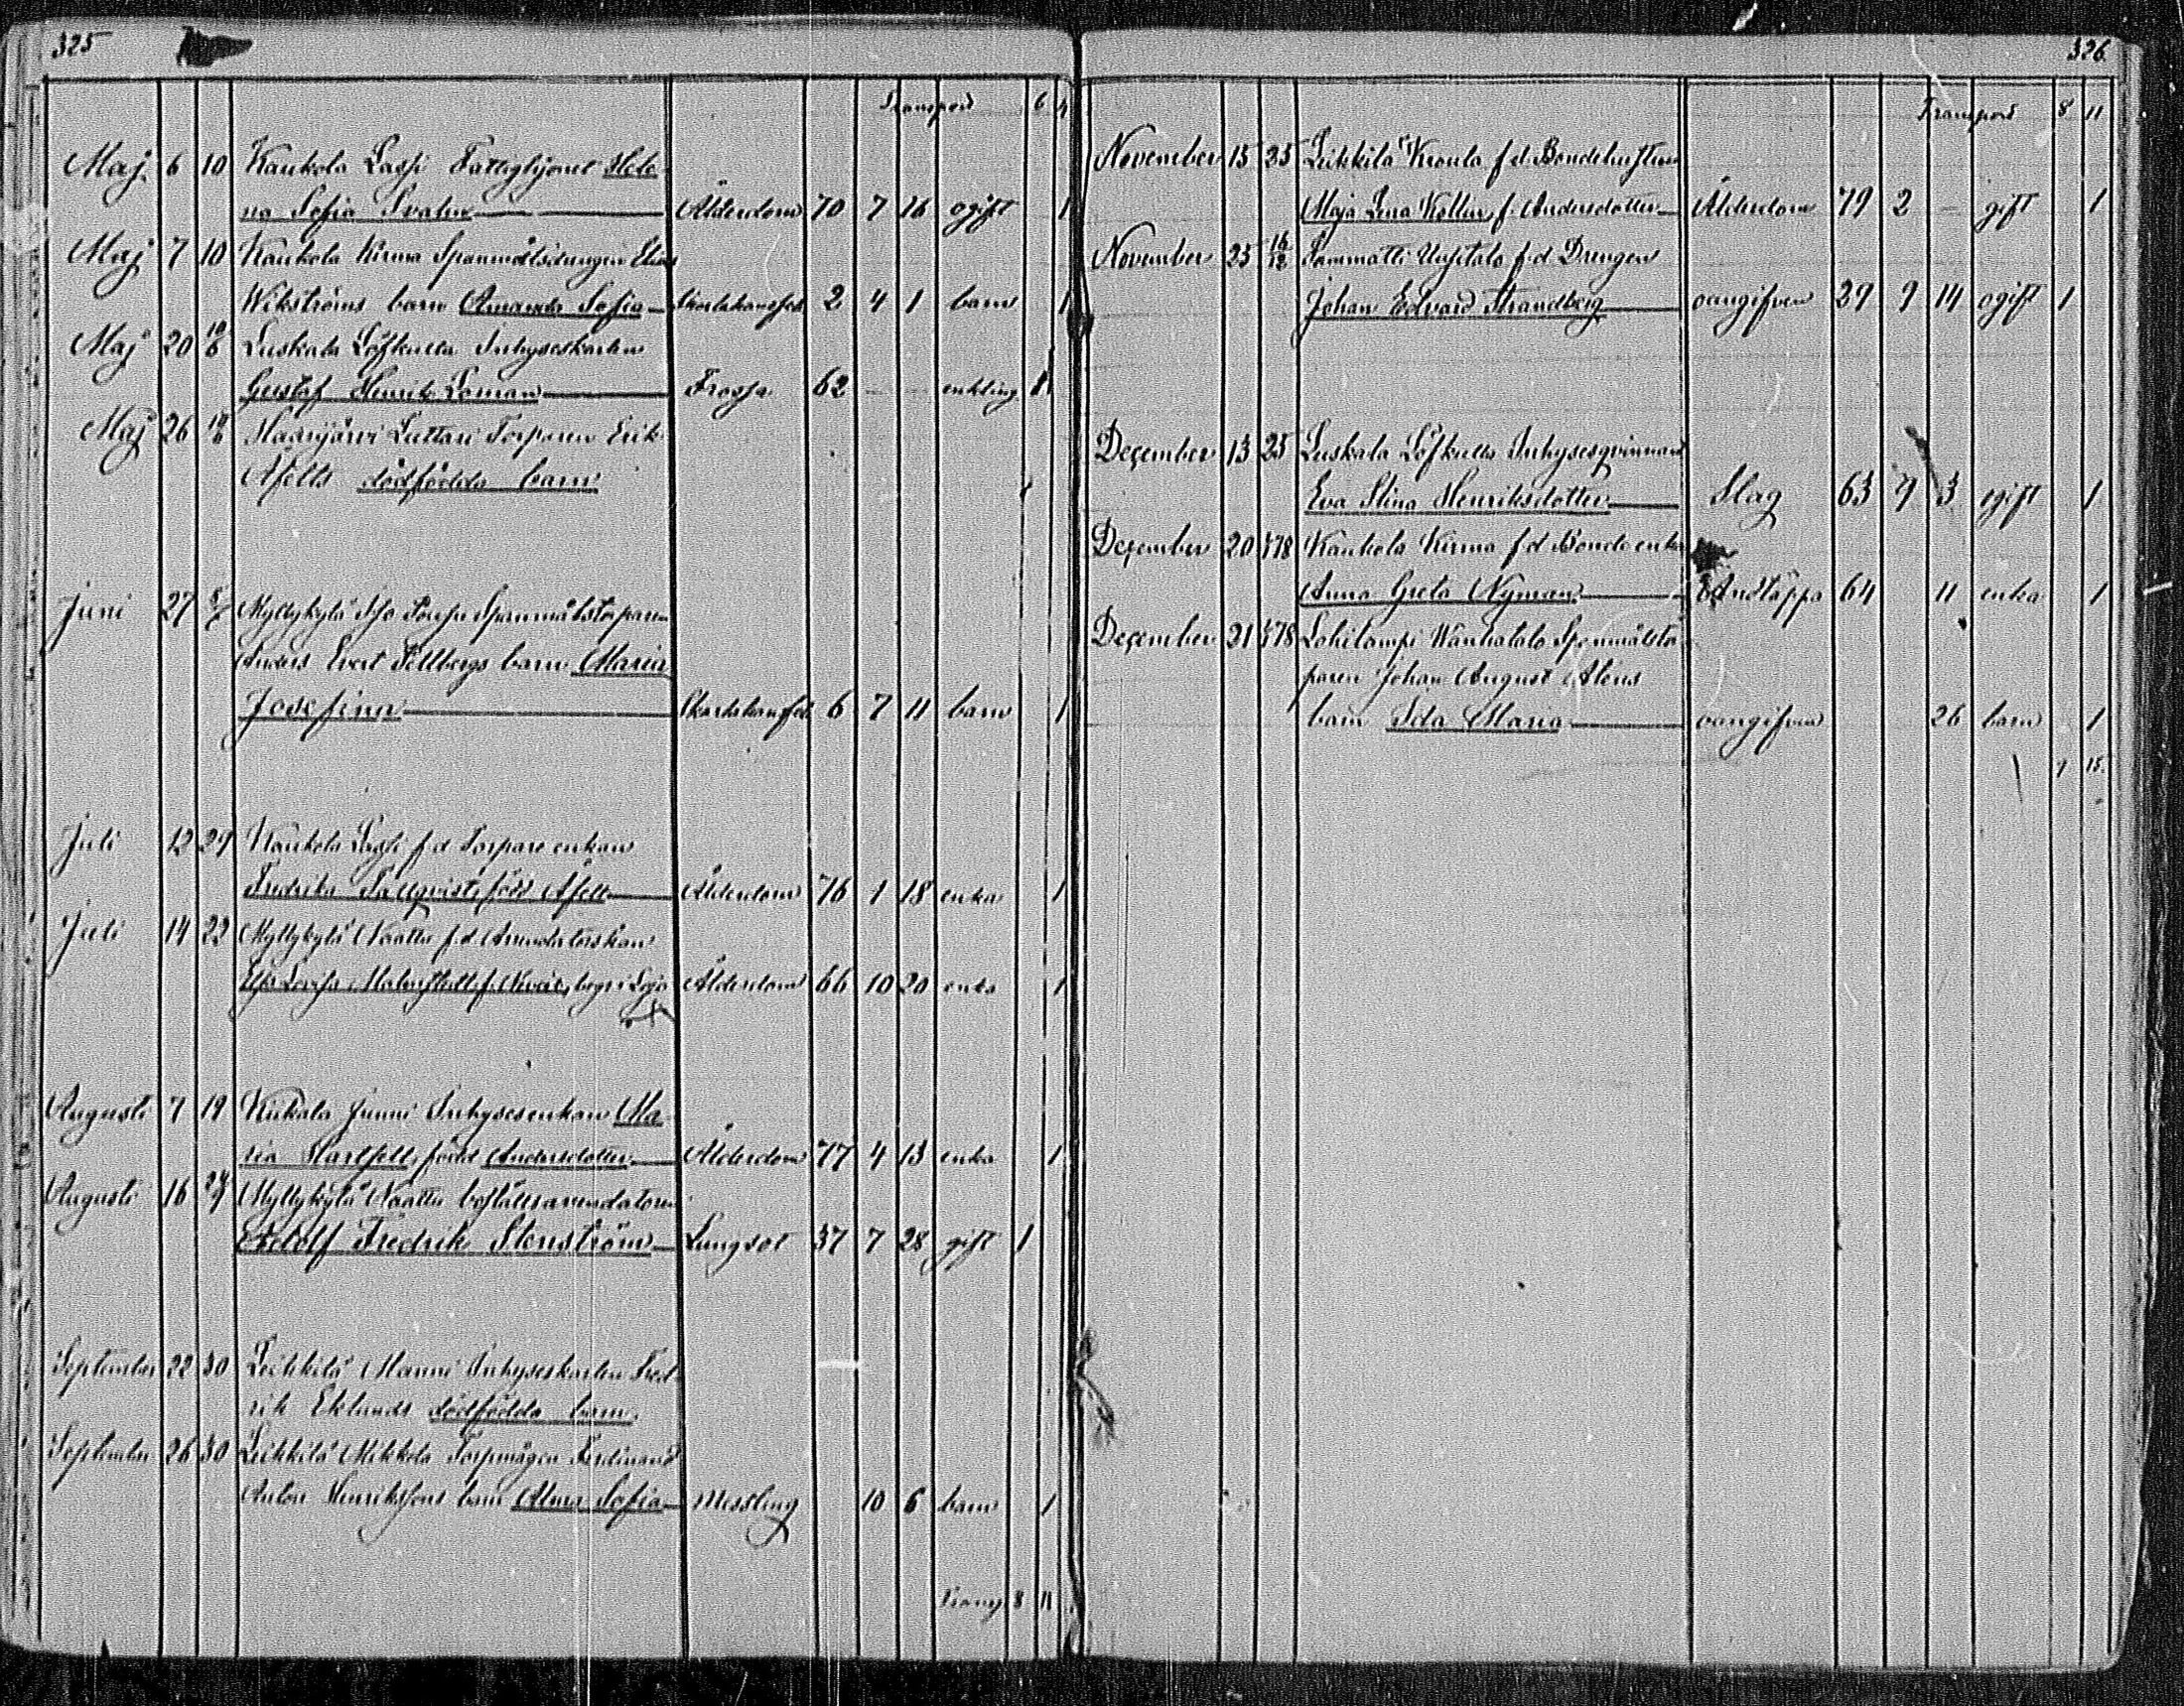 325
Transport 6 4
Maj 6 10 Kaukola Lassi Fattighjonet Hele-
na Sofia Svahn Ålderdom 70 7 16 ogift 1
Maj 7 10 Kaukola Kirma Spanmålsdrängen Elias
Wikströms barn Amanda Sofia Skarlakansfeb 2 4 1 barn 1
Maj 20 10/6 Luskala Löfkulla Inhyseskarlen
Gustaf Henrik Loman Frossa 62 — — enkling 1
Maj 26 10/6 Haarijärvi Luttari Torparen Erik
Afells dödfödda barn
Juni 27 Myllykylä Spanmålstorparen
Anders Evert Fellbergs barn Maria
Josefina Skarlakansfeb 6 7 11 barn 1
Juli 12 29 Kaukola Lassi f.d. Torpare enkan
Fredrika född Afelt Ålderdom 76 1 18 enka 1
Juli 14 22 Myllykylä Naattu f.d. Arrendatorskan
Lovisa Malmstedt f. begr i Lojo Ålderdom 66 10 20 enka 1
Augusti 7 19 Kiikala Junni Inhysesenkan Ma-
ria född Andersdotter Ålderdom 77 4 13 enka 1
Augusti 16 Myllykylä Naattu boställsarrendatoren
Adolf Fredrik Stenström Lungsot 37 7 28 gift 1
September 22 30 Leikkilä Manni Inhyseskarlen Fred-
rik Eklunds dödfödda barn.
September 26 30 Leikkilä Mikkola Torpmågen Ferdinand
Anton Henrikssons barn Alma Sofia Messling 10 6 barn 1
Transp 8 11
326
Transport 8 11
November 15 25 Leikkilä Kroula f.d. Bondehustrun
Maja Lena Kollin f. Andersdotter Ålderdom 79 2 — gift 1
November 25 16/12 Sammatti Uusitalo f.d. Drengen
Johan Edvard Strandberg oangifven 29 9 14 ogift 1
December 13 25 Luskala Löfkulla Inhysesqvinnan
Eva Stina Henriksdotter Slag 63 9 3 ogift 1
December 20 Kaukola Kirma f.d. Bonde enka
Anna Greta Nyman Andtäppa 64 11 enka 1
December 21 Lohilampi Wanhatalo Spanmålstor-
paren Johan August Alens
barn Ida Maria oangifven 26 barn 1
9 15.